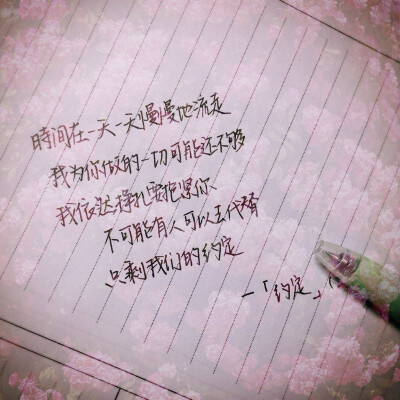 時間在一天一天慢慢地流走
我为你做的一切可能还不够
我依然挣扎要抱紧你、
不可能有人可以去代替
只剩我们的约定
—「约定」